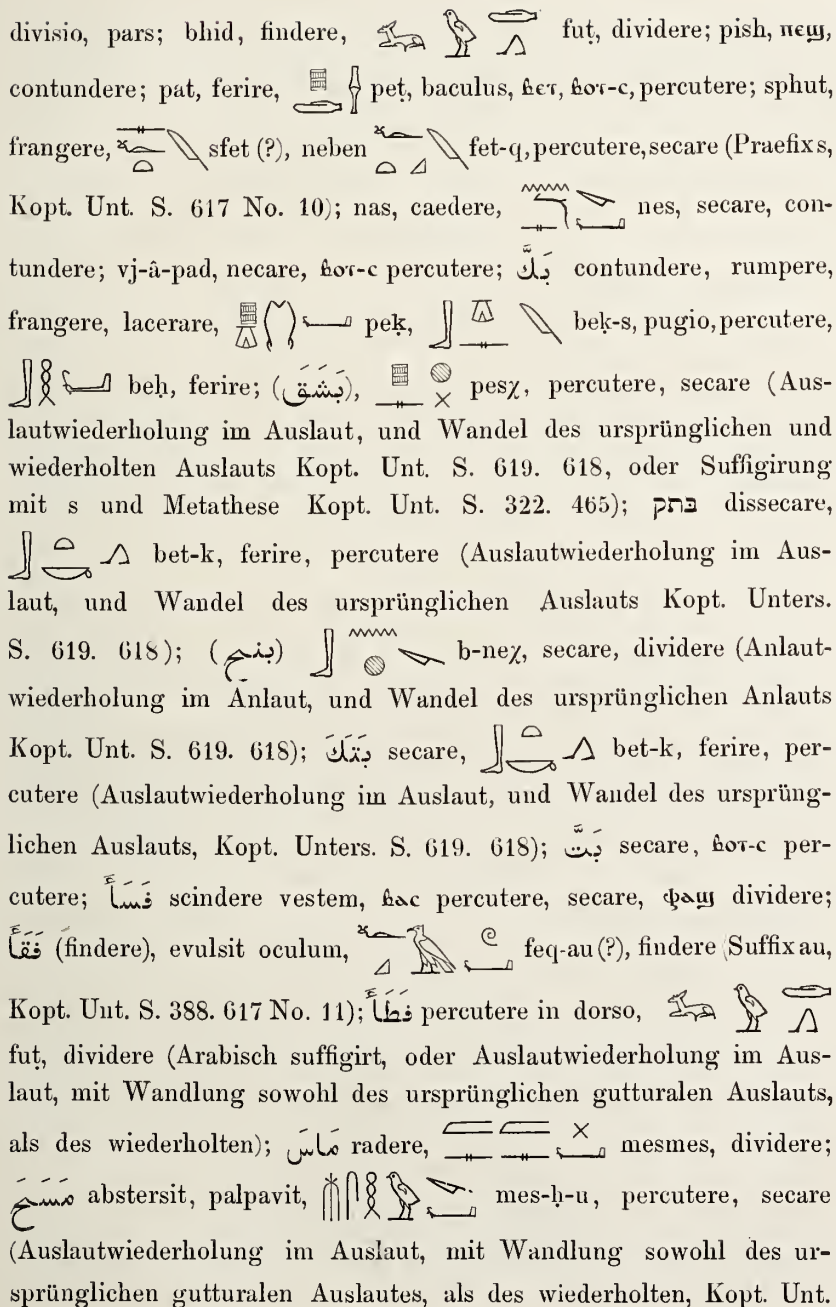 divisio, pars; bhid, findere, 𓆑𓅱𓂧𓂻 fuṭ, dividere; pish, ⲡⲉϣ,
contundere; pat, ferire, peṭ, baculus, ⲃⲉⲧ, ⲃⲟⲧ-ⲥ, percutere; sphut,
frangere, sfet (?), neben fet-q, percutere, secare (Praefix s,
Kopt. Unt. S. 617 No. 10); nas, caedere, nes, secare, con-
tundere; vj-â-pad, necare, ⲃⲟⲧ-ⲥ percutere; بَكَّ contundere, rumpere,
frangere, lacerare, peḳ, beḳ-s, pugio, percutere,
beḥ, ferire; (بَشَقَ), pesχ, percutere, secare (Aus-
lautwiederholung im Auslaut, und Wandel des ursprünglichen und
wiederholten Auslauts Kopt. Unt. S. 619. 618, oder Suffigirung
mit s und Metathese Kopt. Unt. S. 322. 465); בתק dissecare,
bet-k, ferire, percutere (Auslautwiederholung im Aus-
laut, und Wandel des ursprünglichen Auslauts Kopt. Unters.
S. 619. 618); (بنح) b-neχ, secare, dividere (Anlaut-
wiederholung im Anlaut, und Wandel des ursprünglichen Anlauts
Kopt. Unt. S. 619. 618); بَتَكَ secare, bet-k, ferire, per-
cutere (Auslautwiederholung im Auslaut, und Wandel des ursprüng-
lichen Auslauts, Kopt. Unters. S. 619. 618); بَتَّ secare, ⲃⲟⲧ-ⲥ per-
cutere; فَسَأَ scindere vestem, ⲃⲁⲥ percutere, secare, ⲫⲁϣ dividere;
فَقَأَ (findere), evulsit oculum, feq-au (?), findere (Suffix au,
Kopt. Unt. S. 388. 617 No. 11); فَطَأَ percutere in dorso,
fuṭ, dividere (Arabisch suffigirt, oder Auslautwiederholung im Aus-
laut, mit Wandlung sowohl des ursprünglichen gutturalen Auslauts,
als des wiederholten); مَاسَ radere, mesmes, dividere;
مَسَحَ abstersit, palpavit, mes-ḥ-u, percutere, secare
(Auslautwiederholung im Auslaut, mit Wandlung sowohl des ur-
sprünglichen gutturalen Auslautes, als des wiederholten, Kopt. Unt.